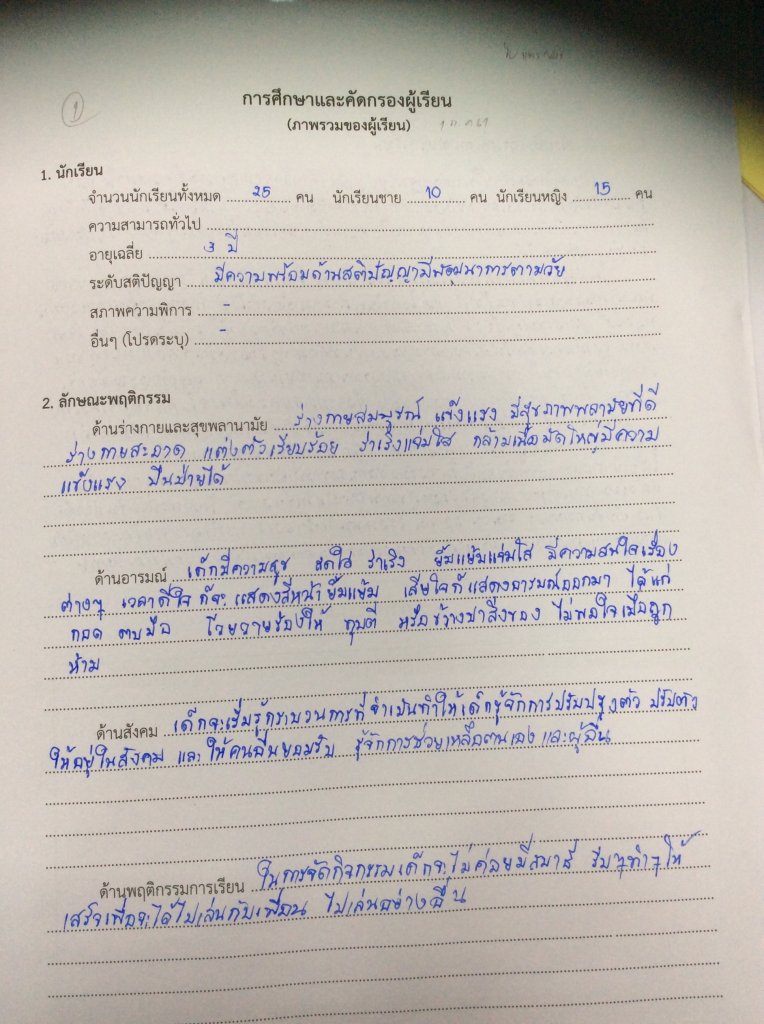 1
การศึกษาและคัดกรองผู้เรียน
(ภาพรวมของผู้เรียน)
1. นักเรียน
จำนวนนักเรียนทั้งหมด 25 คน นักเรียนชาย 10 คน นักเรียนหญิง 15 คน
ความสามารถทั่วไป
อายุเฉลี่ย 3 ปี
ระดับสติปัญญา มีความพร้อมด้านสติปัญญามีพัฒนาการตามวัย
สภาพความพิการ -
อื่นๆ (โปรดระบุ) -
2. ลักษณะพฤติกรรม
ด้านร่างกายและสุขพลานามัย ร่างกายสมบูรณ์ แข็งแรง มีสุขภาพพลามัยที่ดี
ร่างกายสะอาด แต่งตัวเรียบร้อย ร่าเริงแจ่มใส กล้ามเนื้อมัดใหญ่มีความ
แข็งแรง ปีนป่ายได้
ด้านอารมณ์ เด็กมีความสุข สดใส ร่าเริง ยิ้มแย้มแจ่มใส มีความสนใจเรื่อง
ต่างๆ เวลาดีใจ ก็จะแสดงสีหน้ายิ้มแย้ม เสียใจก็แสดงอารมณ์ออกมา ได้แก่
กอด ตบมือ โวยวายร้องไห้ ทุบตี หรือขว้างปาสิ่งของ ไม่พอใจเมื่อถูก
ห้าม
ด้านสังคม เด็กจะเริ่มรู้กระบวนการที่จำเป็นทำให้เด็กรู้จักการปรับปรุงตัว ปรับตัว
ให้อยู่ในสังคม และให้คนอื่นยอมรับ รู้จักการช่วยเหลือตนเองและผู้อื่น
ด้านพฤติกรรมการเรียน ในการจัดกิจกรรมเด็กจะไม่ค่อยมีสมาธิ รีบๆทำๆให้
เสร็จเพื่อจะได้ไปเล่นกับเพื่อน ไปเล่นอย่างอื่น